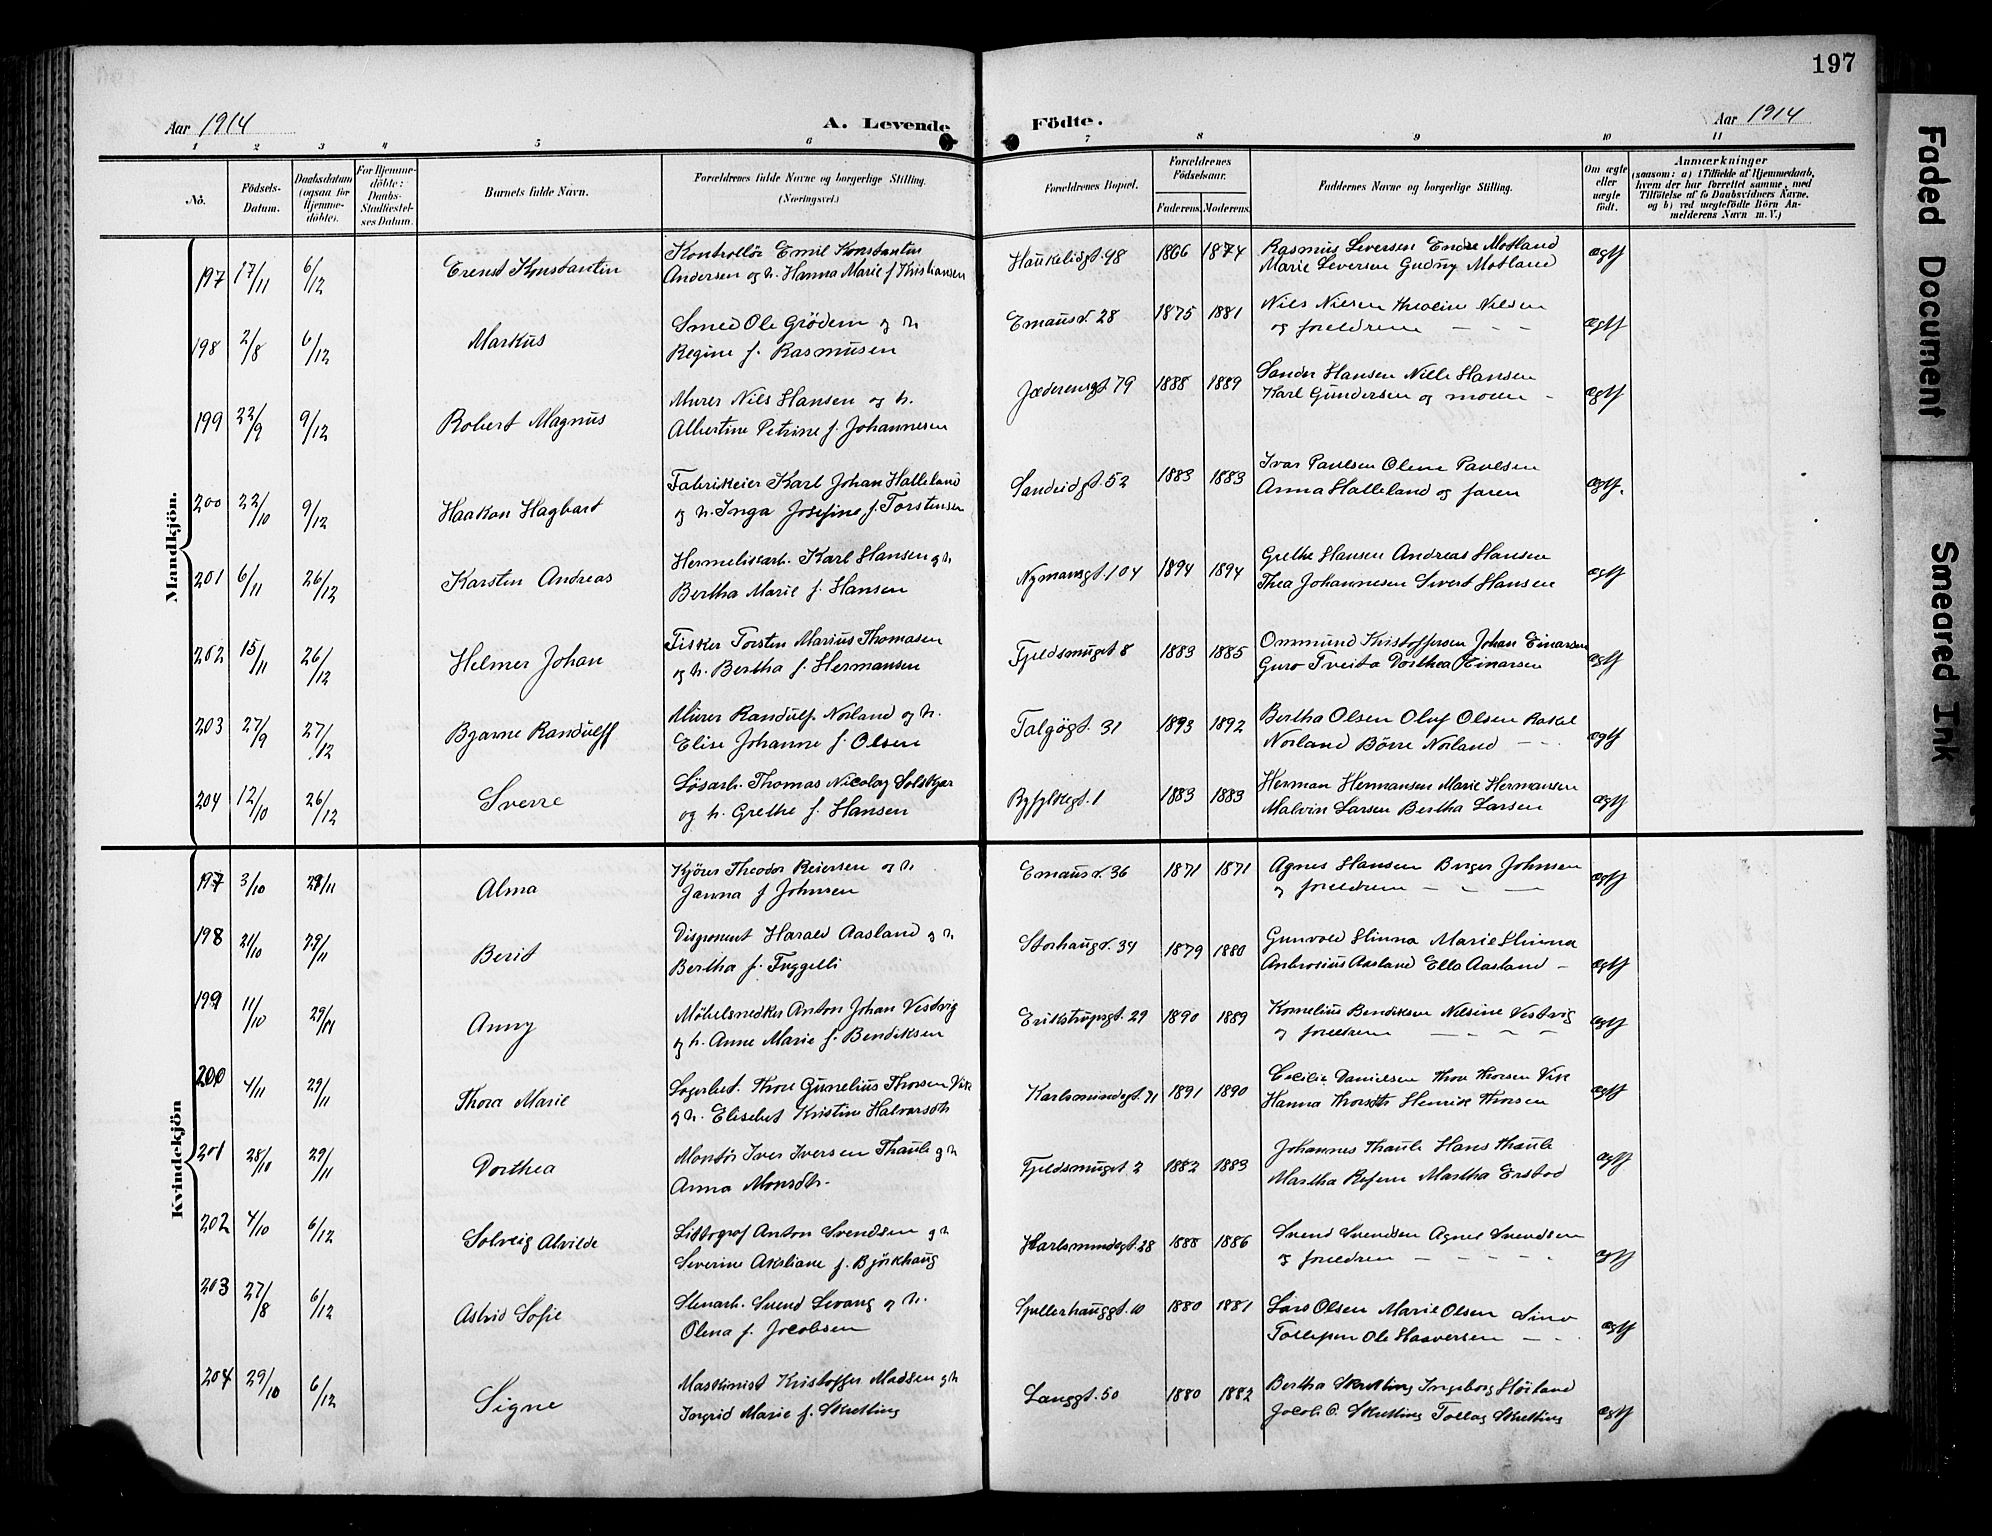 197
Aar 1914
A. Levende Födte.
Aar 1914
1 2 3 4 5 6 7 8 9 10 11
No.
Födsels-Datum.
Daabsdatum (ogsaa for Hjemme-döbte).
For Hjemme-döbte: Daabs-Stadfæstel-ses Datum.
Barnets fulde Navn.
Forældrenes fulde Navne og borgerlige Stilling. (Næringsvei.)
Forældrenes Bopæl.
Forældrenes Födselsaar.
Faderens. Moderens.
Faddernes Navne og borgerlige Stilling.
Om ægte eller uægte födt.
Anmærkninger
(saasom: a) i Tilfælde af Hjemmedaab,
hvem der har forrettet samme, med
Tilföielse af to Daabsvidners Navne,
og b) ved uægtefödte Börn An-
melderens Navn m. V.)
Mandkjön.
197 17/11 6/12 Erenst Konstantin Kontrollör Emil Konstantin Haukelidgt. 98 1866 1874 Rasmus Seversen Endre Motland ægtf
Andersen og h. Hanna Marie f. Kristiansen Marie Seversen Gudny Motland
198 2/8 6/12 Markus Smed Ole Grödem og h. Emausv. 28 1875 1881 Nils Nilsen Theoline Nilsen ægtf
Regine f. Rasmusen og foreldrene — — —
199 22/9 9/12 Robert Magnus Murer Nils Hansen og h. Jæderensgt 79 1888 1889 Sander Hansen Nille Hansen ægtf
Albertine Petrine f. Johannesen Karl Gundersen og moren -
200 22/10 9/12 Haakon Hagbart Fabrikeier Karl Johan Halleland Sandeidgt. 52 1883 1883 Ivar Paulsen Olene Paulsen ægtf.
og h. Inga Josefine f. Torstensen Anna Halleland og faren
201 6/11 26/12 Karsten Andreas Hermetikarb. Karl Hansen og h Nymansgt. 104 1894 1894 Grethe Hansen Andreas Hansen ægtf
Bertha Marie f. Hansen Thea Johannesen Sivert Hansen
202 15/11 26/12 Helmer Johan Fisker Torsten Marius Thomasen Fjeldsmuget 8 1883 1885 Ommund Kristoffersen Johan Einarsen ægtf
og h. Bertha f. Hermansen Guro Tveita Dorthea Einarsen
203 27/9 27/12 Bjarne Randulff Murer Randulf Norland og h. Talgögt. 31 1893 1892 Bertha Olsen Oluf Olsen Rakel ægtf
Elise Johanne f. Olsen Norland Börre Norland — - -
204 12/10 26/12 Sverre Lösarb. Thomas Nicolay Solskjær Ryfylkegt. 1 1883 1883 Herman Hermansen Marie Hermansen ægtf
og h. Grethe f. Hansen Malvin Larsen Bertha Larsen
Kvindekjön
197 3/10 29/11 Alma Kjörer Theodor Reiersen og h. Emausv. 36 1871 1871 Agnes Hansen Birger Johnsen ægtf
Janna f Johnsen og foreldrene — - —
198 21/10 29/11 Berit Disponent Harald Aasland og h Storhaugv. 34 1879 1880 Gunvald Hinna Marie Hinna ægtf
Bertha f. Fuggelli Ambrosius Aasland Ella Aasland —
199 11/10 29/11 Anny Möbelsnedker Anton Johan Vestvig Erikstrupsgt. 29 1890 1889 Kornelius Bendiksen Nilsine Vestvig ægtf
og h. Anne Marie f. Bendiksen og foreldrene — - - -
200 4/11 29/11 Thora Marie Lagerbet. Thore Gunelius Thorsen Vik Karlsmindegt. 71 1891 1890 Cecilie Danielsen Thore Thorsen Vik ægtf
og h. Elisebet Kristine Halvarsdtr Hanna Thorsdtr Henrik Thorsen
201 28/10 29/11 Dorthea Montör Iver Iversen Thaule og h Fjeldsmuget 2 1882 1883 Johannes Thaule Hans Thaule ægtf
Anna Monsdtr. Martha Martha
202 4/10 6/12 Solveig Alvilde Littograf Anton Svendsen og h Karlsmindegt. 28 1888 1886 Svend Svendsen Agnes Svendsen ægtf
Severine Akeliane f. Björkhaug og foreldrene - - - - -
203 27/8 6/12 Astrid Sofie Stenarb. Svend Levang og h. Spilderhauggt. 10 1880 1881 Lars Olsen Marie Olsen Sina ægtf
Olena f. Jocobsen Tollefsen Ole Haaversen — - -
204 29/10 6/12 Signe Maskinist Kristoffer Madsen og h Langgt. 50 1880 1882 Bertha Skretting Ingeborg Höiland ægtf
Ingrid Marie f. Skretting Jocob O. Skretting Tollag Skretting
Faded Document
Smeared Ink